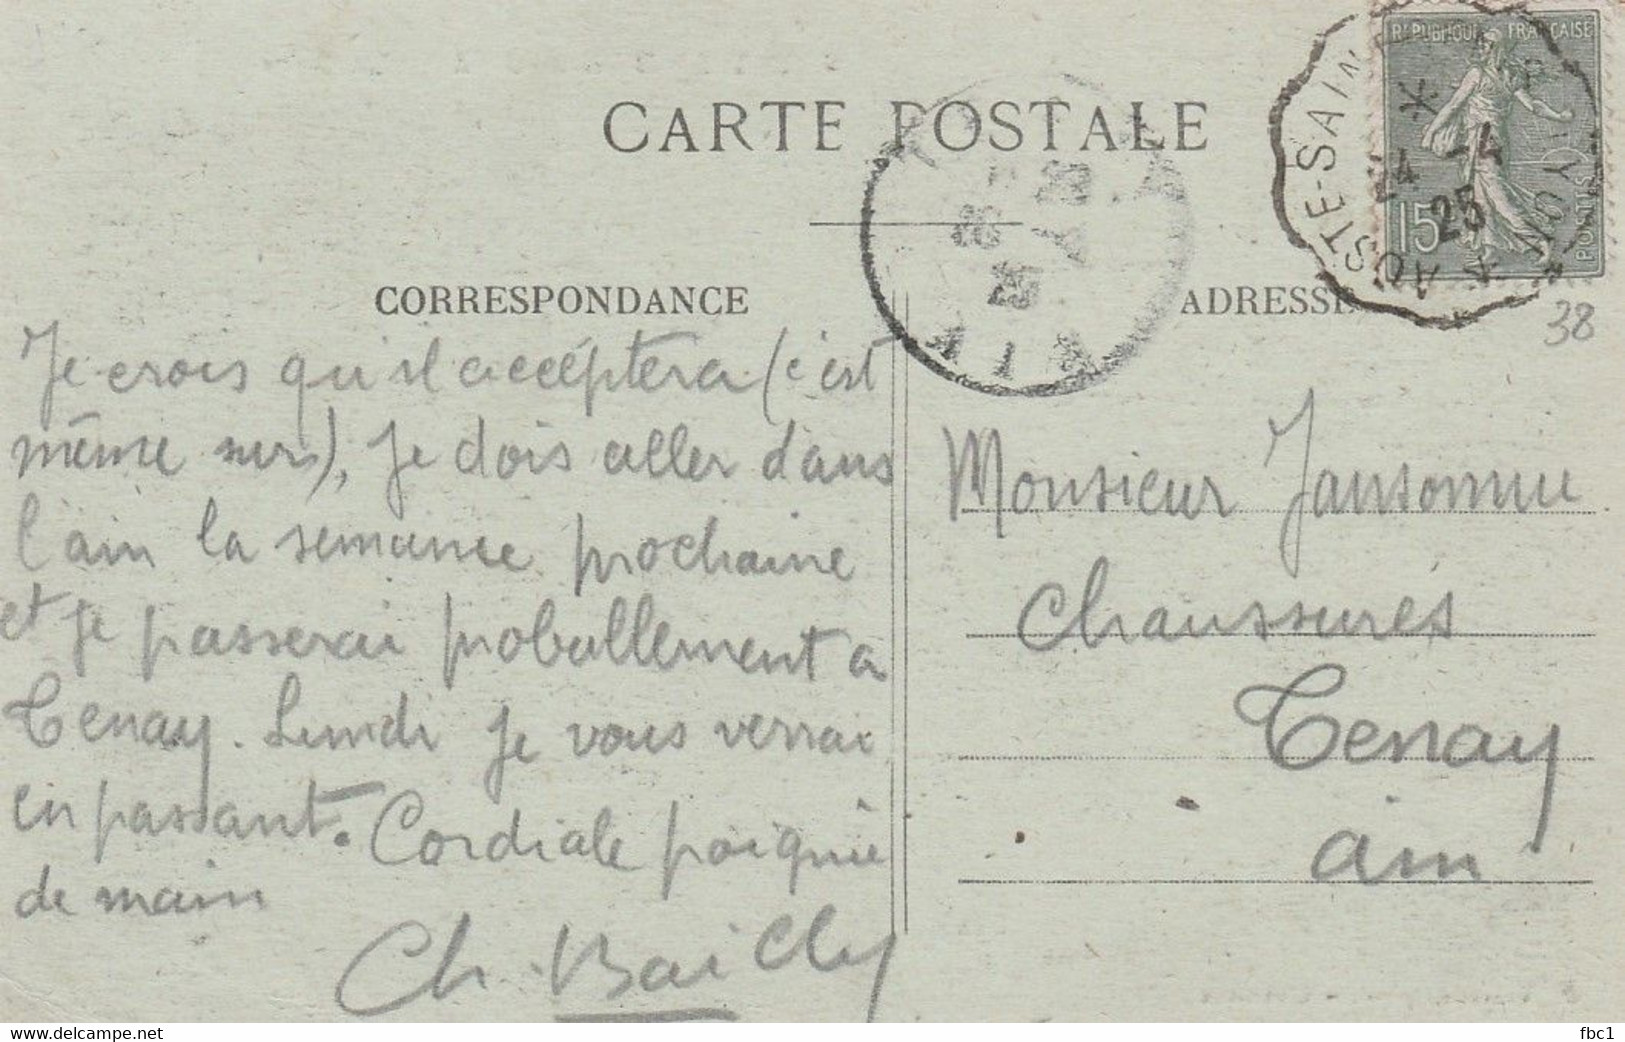 RÉPUBLIQUE FRANÇAISE
15
POSTES
AOSTE-SAIN
LYON
24 -4
25
CARTE POSTALE
AIN
38
CORRESPONDANCE
Je crois qu'il accéptera (c'est
même sur), je dois aller dans
l'ain la semaine prochaine
et je passerai proballement a
Tenay. Lundi je vous verrai
en passant. Cordiale poignée
de main
Ch. Bailly
ADRESSE
Monsieur Jansonnie
Chaussures
Tenay
ain
www.delcampe.net
fbc1